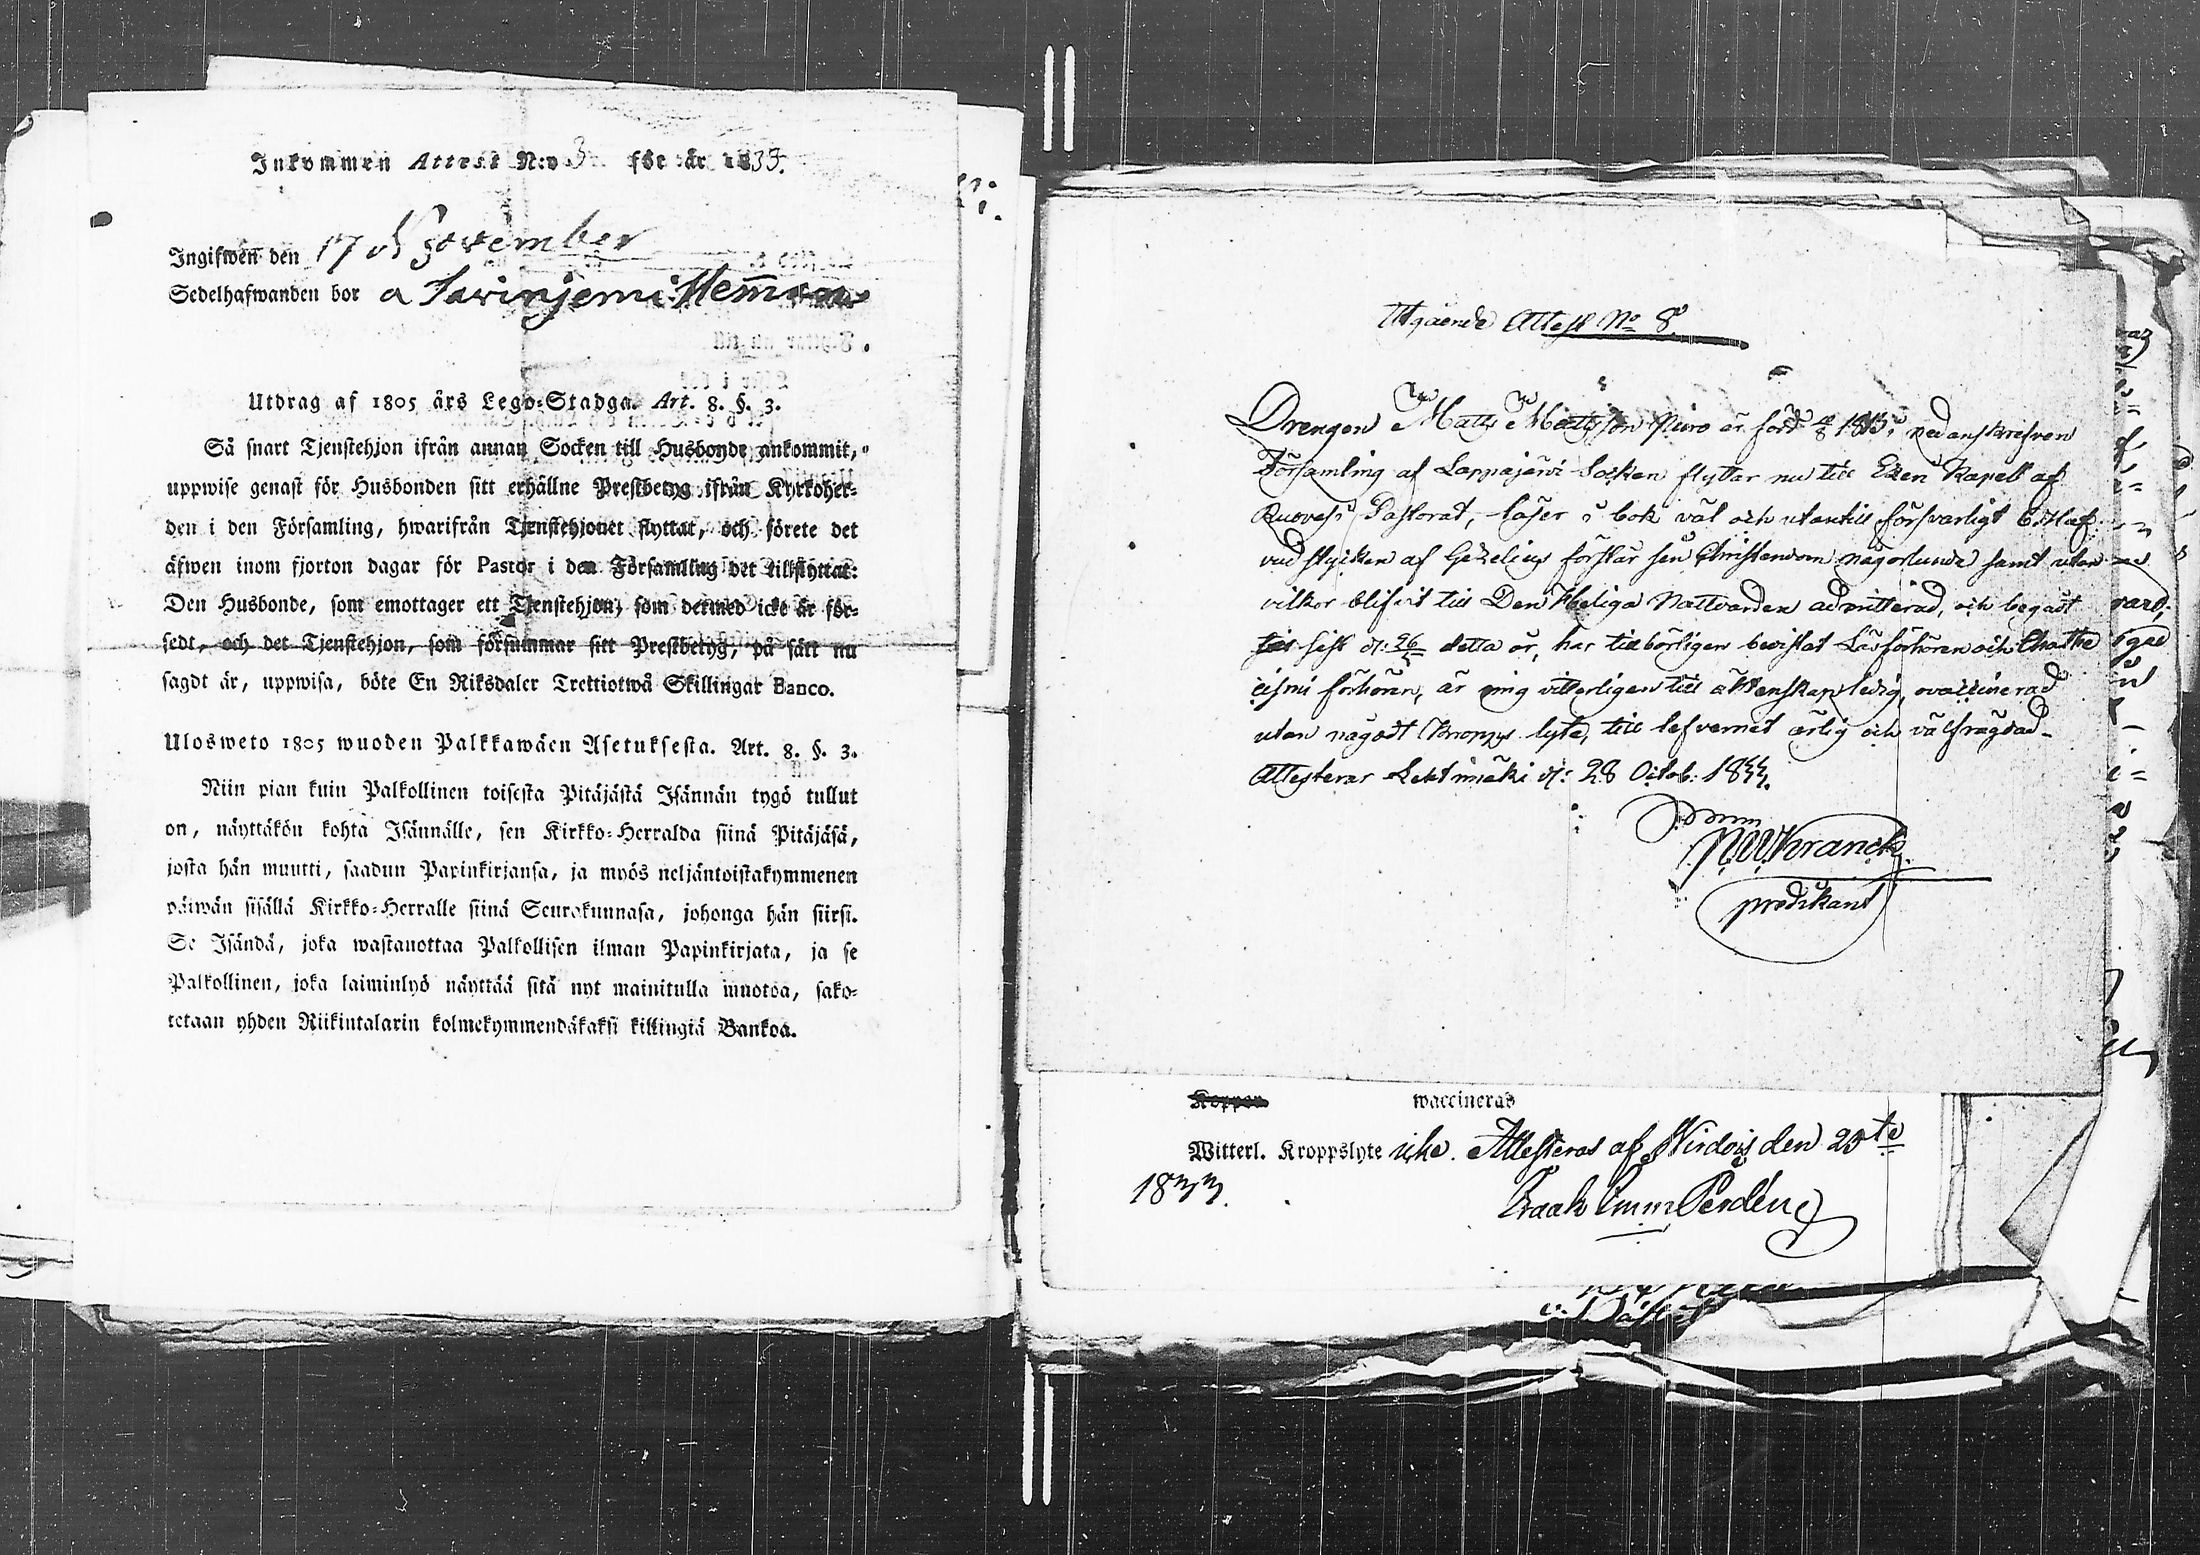 Inkommen Attest N:o 3 för år 1833.
Ingifwen den 17 November
Sedelhafwanden bor a Savinjemi Hemman
Utdrag af 1805 års Lego-Stadga. Art. 8. §. 3.
Så snart Tjenstehjon ifrån annan Socken till Husbonde ankommit,
uppwise genast för Husbonden sitt erhållne Prestbetyg ifrån Kyrkoher-
den i den Församling, hwarifrån Tjenstehjonet flyttat, och förete det
äfwen inom fjorton dagar för Pastor i den Församling det tillflyttat:
Den Husbonde, som emottager ett Tjenstehjon, som dermed icke är för-
sedt, och det Tjenstehjon, som försummar sitt Prestbetyg, på sätt nu
sagdt är, uppwisa, böte En Riksdaler Trettiotwå Skillingar Banco.
Ulosweto 1805 wuoden Palkkawäen Asetuksesta. Art. 8. §. 3.
Niin pian kuin Palkollinen toisesta Pitäjästä Isännän tygö tullut
on, näyttäkön kohta Isännälle, sen Kirkko-Herralda siinä Pitäjäsä,
josta hän muutti, saadun Papinkirjansa, ja myös neljäntoistakymmenen
päiwän sisällä Kirkko-Herralle siinä Seurakunnasa, johonga hän siirsi.
Se Isändä, joka wastanottaa Palkollisen ilman Papinkirjata, ja se
Palkollinen, joka laiminlyö näyttää sitä nyt mainitulla muotoa, sako-
tetaan yhden Riikintalarin kolmekymmendäkaksi killingiä Bankoa.
Utgående Attest No 8
Drengen Matts Mattsson Niiro är född 1813 i nedanskrefven
Församling af Lappajärvi Socken flyttar nu till Etzeri Kapell af
Ruovesi Pastorat, läser i bok väl och utantill försvarligt
vudstycken af Gezelius förstår sin Christendom någorlunda samt utan
vilkor blifvit till Den Heliga Nattvarden admitterad, och begådt
sist d: 26 detta år, har tillbörligen bevistat Läsförhören och Chathe
cismi förhören, är mig vitterligen till äktenskap ledig, ovaccinerad
utan någodt kropps lyte, till lefvernet ärlig och välfrägdad
Attesterar Lehtimäki d: 28 Octob: 1833.
N W Kranck
predikant
Koppor waccinerad
Witterl. Kroppslyte icke. Attesteras af Wirdois den 20te
1833.
Isaak Emm Perdén